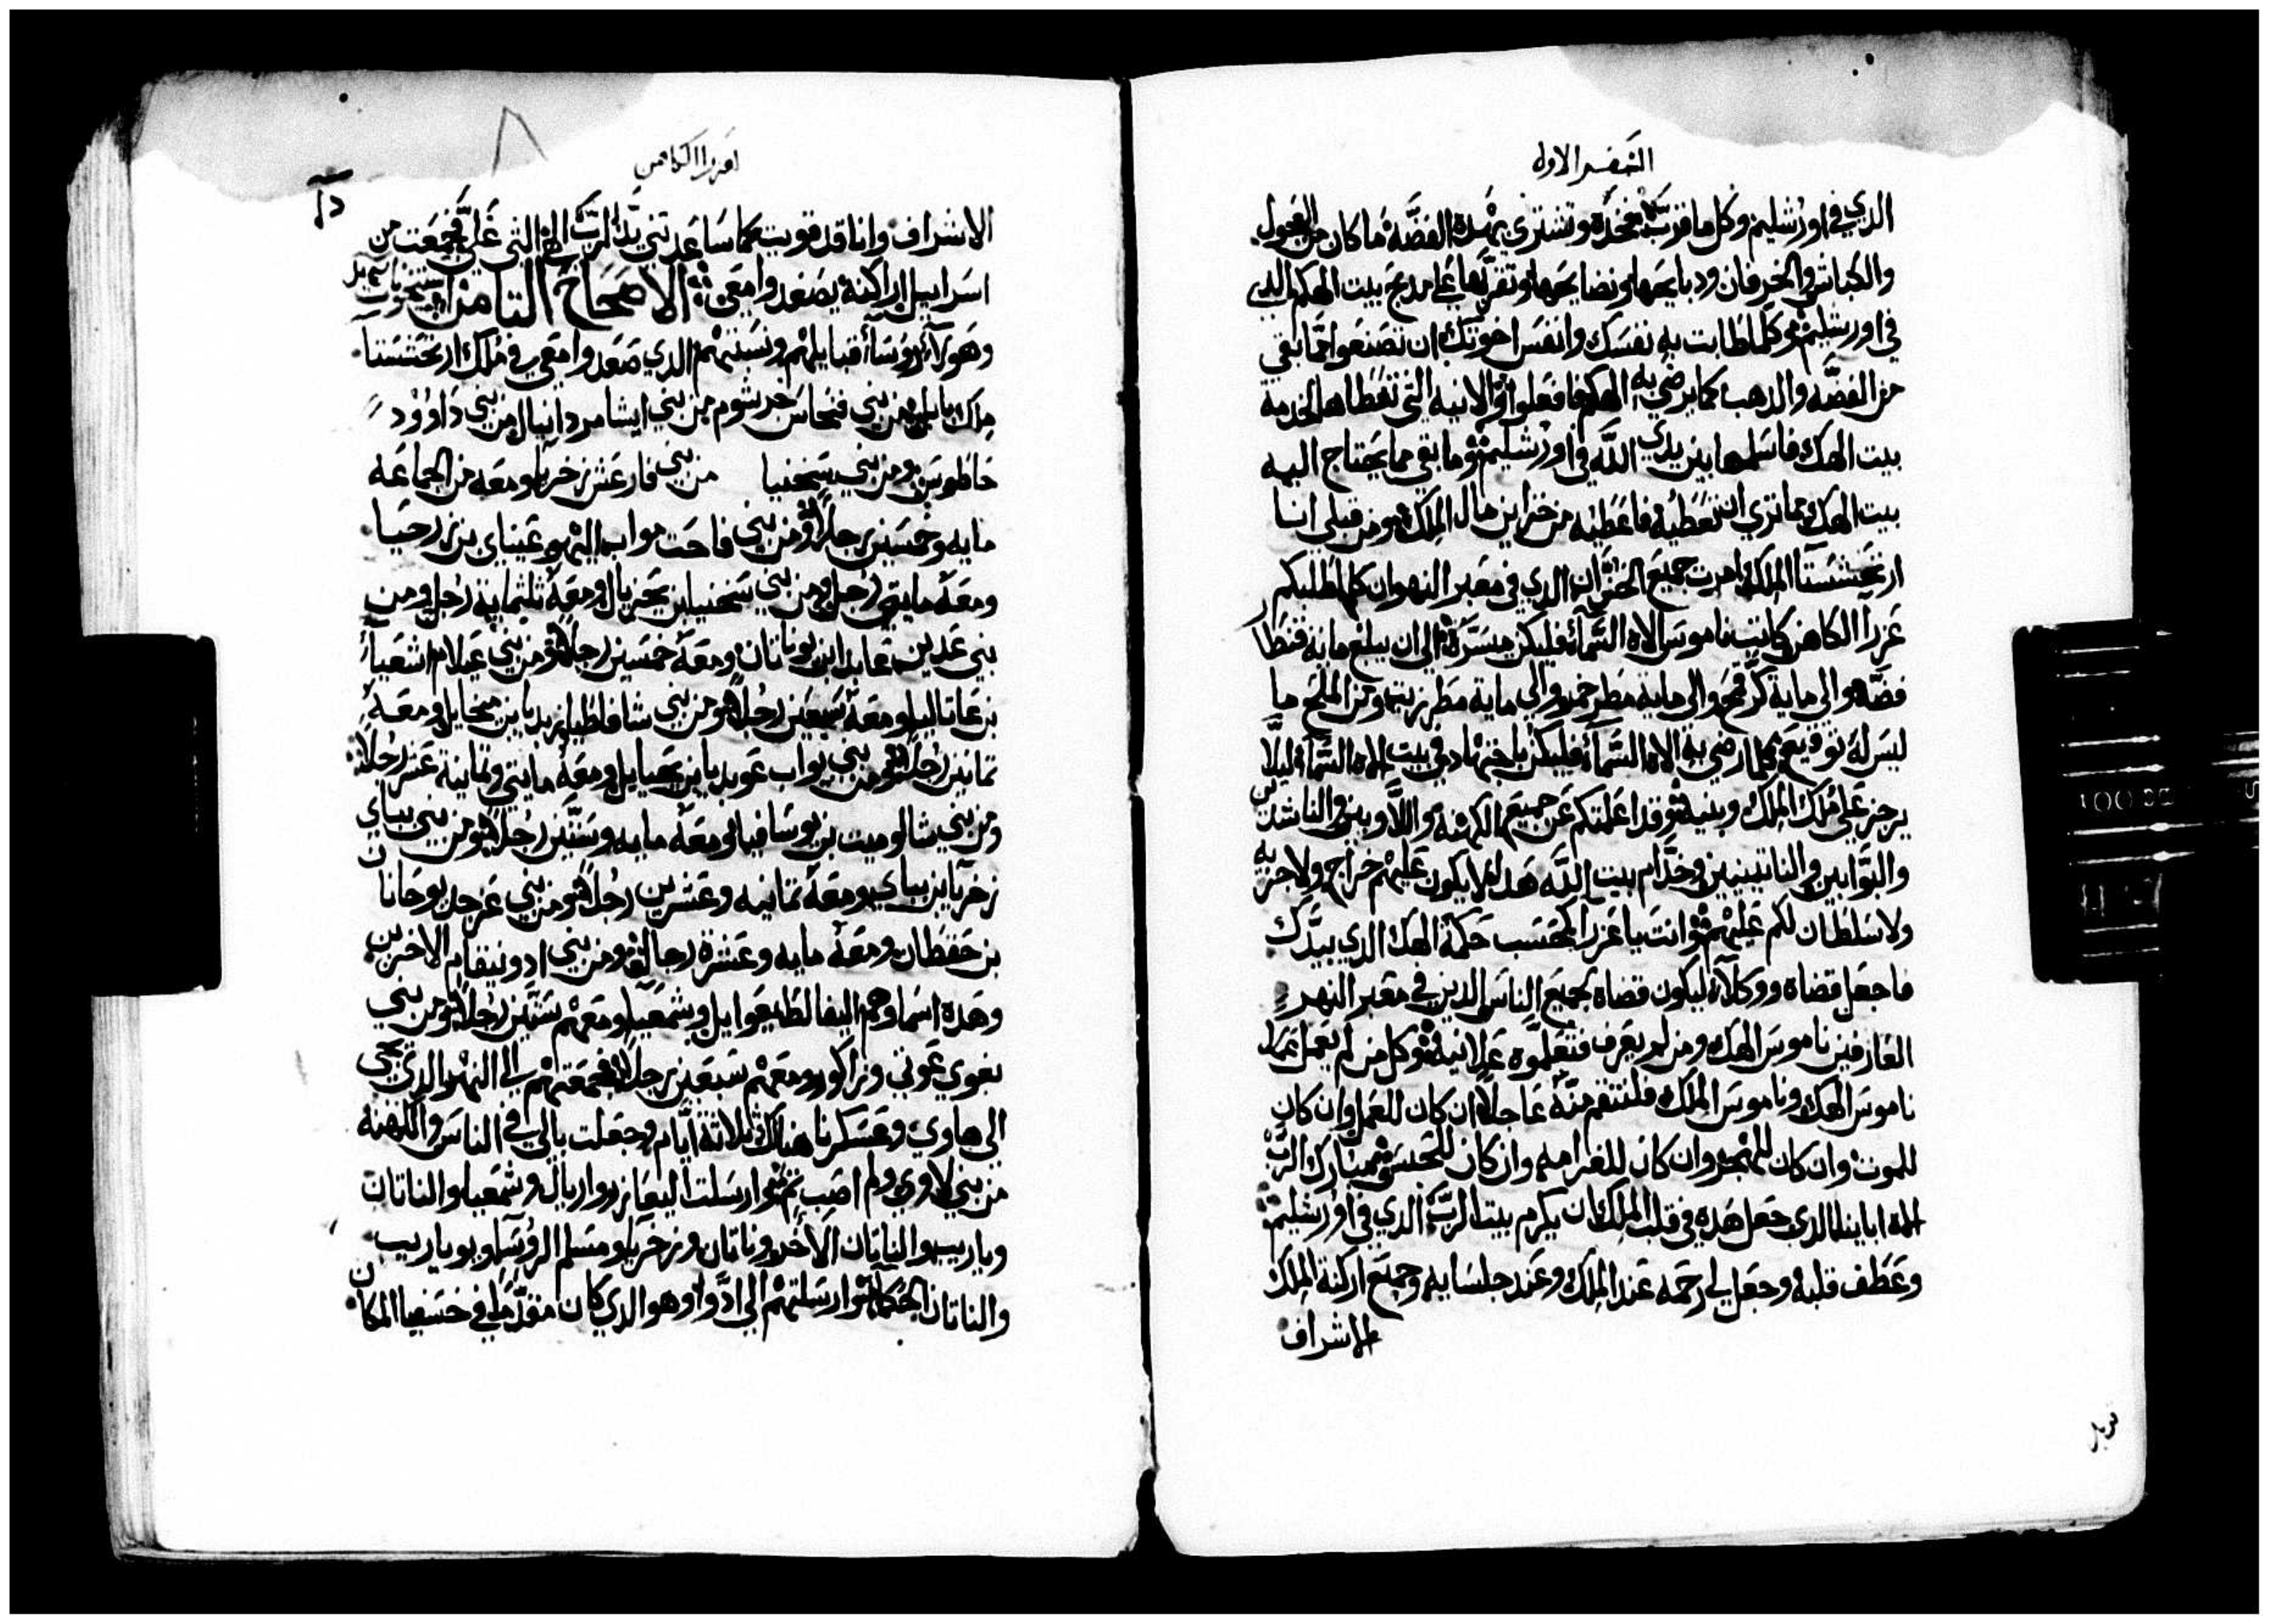 السفر الاول
الذي في اورشليم وكل ما قربت فخذه وتشتري بهذه الفضة ما كان من العجول
والكباش والخرفان ودبايحها ونضايحها وتقربها على مدبح بيت الهكم الذي
في اورشليم وكلما طابت به نفسك وانفس اخوتك ان تصنعوا مما بقي
من الفضه والدهب كما يرضي به الهكم فافعلوا والانيه التي تعطاها لخدمة
بيت الهك فاسلمها بين يدي الله في اورشليم وما بقي مما يحتاج اليه
بيت الهك مما تري ان تعطيه فاعطيه من خزاين مال الملك ومن قبلي انا
ارتحششتا الملك امرت جميع الخزان الذي في معبر النهر ان كلما طلبكم
عزرا الكاهن كاتب ناموس الاه السمآء فليكن ميسرة الى ان يبلغ مايه قنطار
فضه والى ماية كر قمح والى مايه مطر خمر والى ماية مطر زيت ومن الملح ما
ليس له توقيع كلما رضي به الاه السمآء فليكن باجتهاد في بيت الاه السمآء ليلا
يرجز على ملك الملك وبنيه وقد اعلمتكم عن جميع الكهنه واللاويين والناشدين
والبوابين والناتينيين وخدام بيت الله هدا لا يكون عليهم خراج ولا جزيه
ولا سلطان لكم عليهم وانت يا عزرا كحسب حكمة الهك الذي بيدك
فاجعل قضاة ووكلاء ليكون قضاة لجميع الناس الدين في معبر النهر
العارفين ناموس الهك ومن لم يعرف فتعلموه علانيه وكل من لم يعمل عمل
ناموس الهك وناموس الملك فلننتقم منه عاجلا ان كان للعمل وان كان
للموت وان كان وان كان للغرامه وان كان للحبس مبارك الرب
اله اباينا الدي جعل هده في قلب الملك ان يكرم بيت الرب الذي في اورشليم
وعطف قلبه وجعل لي رحمه عند الملك وعند جلسايه وجميع اراكنة الملك
الاشراف
عزرا الكاهن
الاشراف وانا قد قويت كما ساعدتني يد الرب الهي التي علي فجمعت من
اسراييل اراكنة يصعدوا معي الاصحاح التامن
وهولآء روسآء قبايلهم ونسبتهم الدي صعدوا معي في ملك ارتحششتا
ملك بابل من بني فنحاس خرشوم من بني ايثامر دانيال من بني داوود
حاطوس ومن بني سخنيا من بني فارعش زخريا ومعه من الجماعه
مايه وخمسين رجلا ومن بني فاحت مواب اليهو عيناي بن زرحيا
ومعه مايتي رجل ومن بني سخنيا بن يحزيال ومعه تلتماية رجل ومن
بني عدين عابد ابن يوناتان ومعه خمسين رجلا ومن بني عيلام اشعيا
بن عاتاليا ومعه سبعين رجلا ومن بني شافاطيا زبديا بن ميخايل ومعه
تمانين رجلا ومن بني يواب عوبديا بن يحيايل ومعه مايتي وتمانية عشر رجلا
ومن بني شالوميت بن يوسافيا ومعه مايه وستين رجلا ومن بني بباي
زخريا بن بباي ومعه تمانيه وعشرين رجلا ومن بني عزجد يوحانان
بن حقطان ومعه مايه وعشرة رجال ومن بني ادونيقام الاخرين
وهده اسماوهم اليفالط يعوايل وشمعيا ومعهم ستين رجلا ومن بني
بغوي عوتي وزاكور ومعهم سبعين رجلا فجمعتهم الى النهر الدي يجي
الى هاوي وعسكرنا هناك تلاتة ايام وجعلت بالي في الناس والكهنه
من بني لاوي ولم اصب تم وارسلت اليعازر واريال وشمعيا والناتان
وياريب والناتان الاخر وناتان وزخريا ومسلم الروسآ ويوياريب
والناتان الحكما وارسلتهم الى ادوا وهو الدي كان مقدما في خسفيا المكان